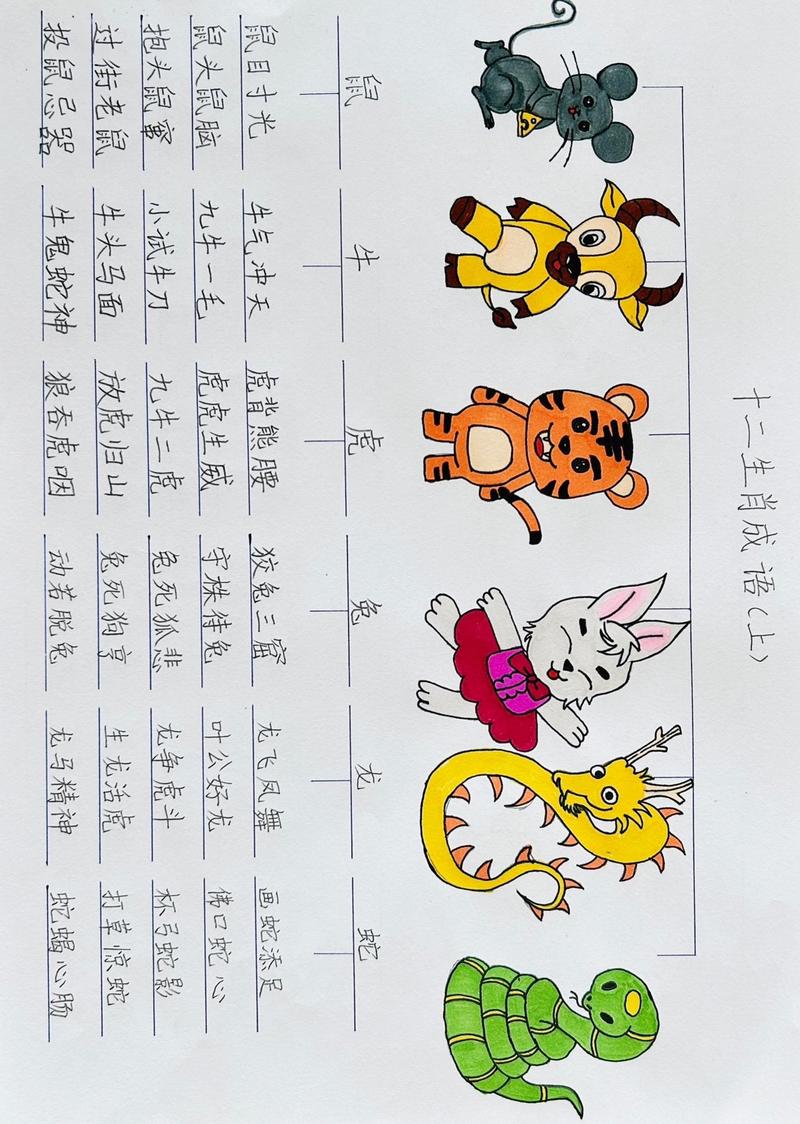 十二生肖成语(上)
鼠
鼠目寸光
鼠头鼠脑
抱头鼠蜜
过街老鼠
投鼠忌器
牛
牛气冲天
九牛一毛
小试牛刀
牛头马面
牛鬼蛇神
虎
虎背熊腰
虎虎生威
九牛二虎
放虎归山
狼吞虎咽
兔
狡兔三窟
守株待兔
兔死狐悲
兔死狗享
动若脱兔
龙
龙飞凤舞
叶公好龙
龙争虎斗
生龙活虎
龙马精神
蛇
画蛇添足
佛口蛇心
杯弓蛇影
打草惊蛇
蛇蝎心肠